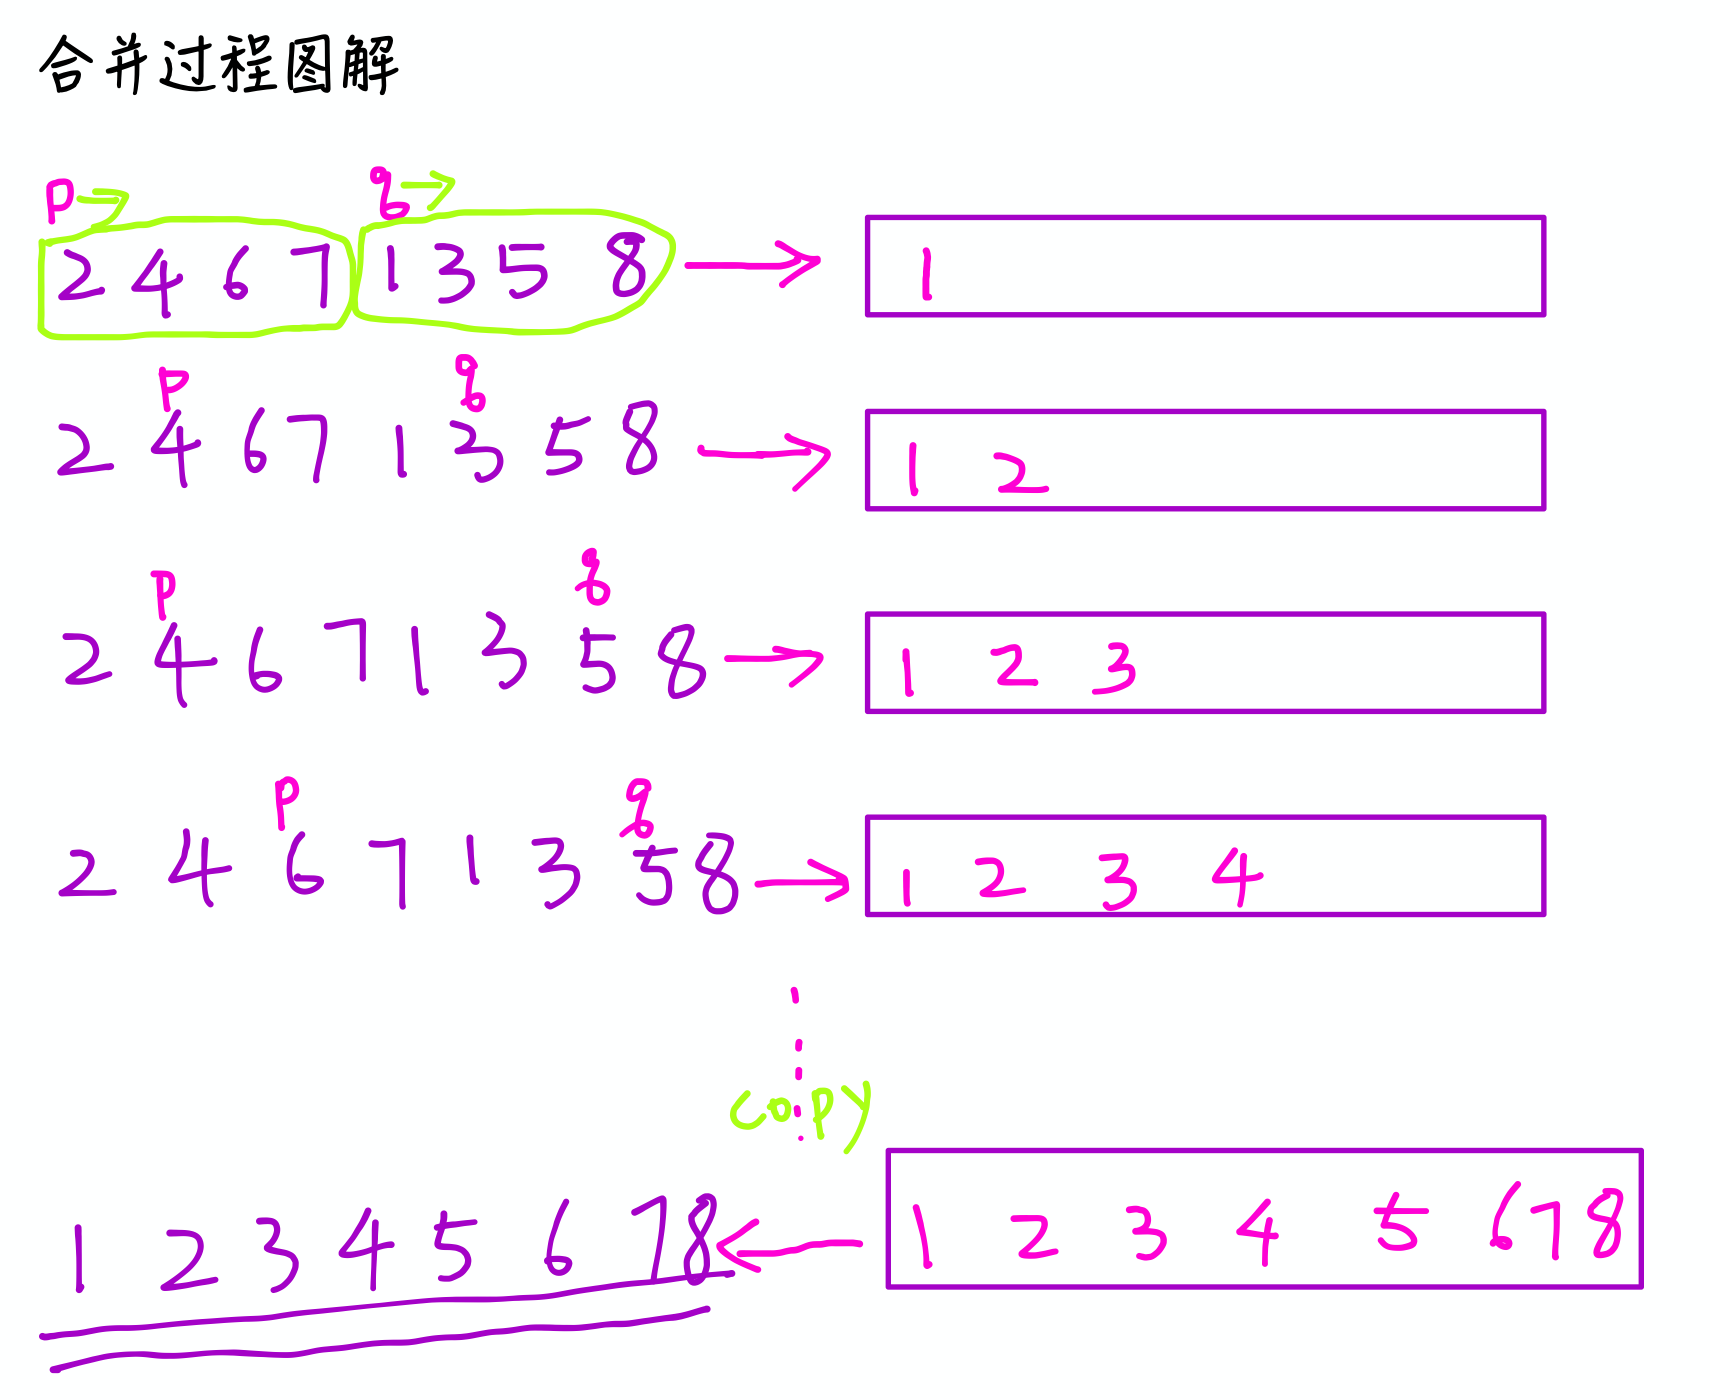 合并过程图解
p q
2 4 6 7 1 3 5 8 1
p q
2 4 6 7 1 3 5 8 1 2
p q
2 4 6 7 1 3 5 8 1 2 3
p q
2 4 6 7 1 3 5 8 1 2 3 4
copy
1 2 3 4 5 6 7 8 1 2 3 4 5 6 7 8